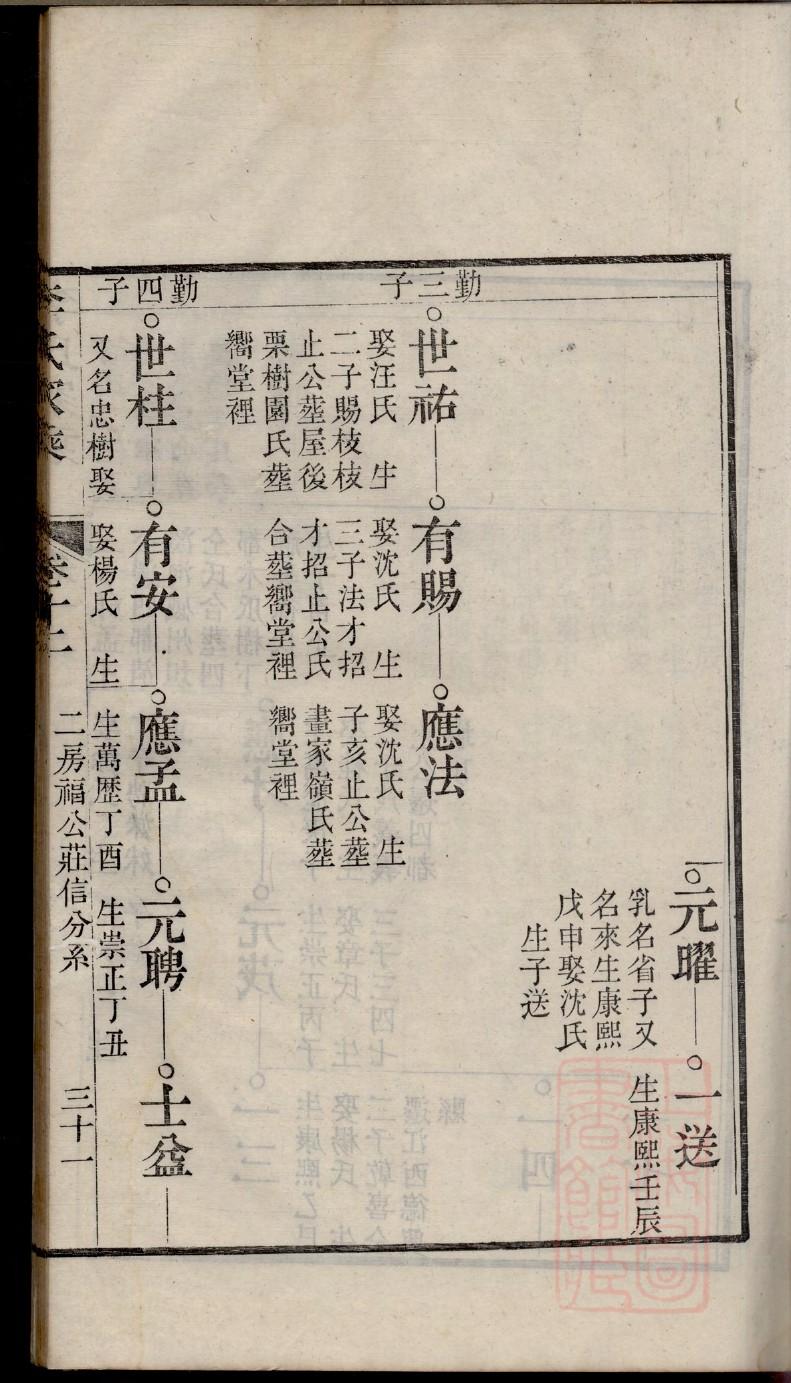 元曜
乳名省子又
名來生康熙
戊申娶沈氏
生子送
一送
生康熙壬辰
勤三子
世祐
娶汪氏 生
二子賜枝枝
止公塟屋後
栗樹園氏塟
嚮堂裡
有賜
娶沈氏 生
三子法才招
才招止公氏
合塟嚮堂裡
應法
娶沈氏 生
子亥止公塟
畫家嶺氏塟
嚮堂裡
勤四子
世柱
又名忠樹娶
有安
娶楊氏 生
應孟
生萬歷丁酉
元聘
生崇正丁丑
士益
卷十二
二房福公莊信分系
三十一